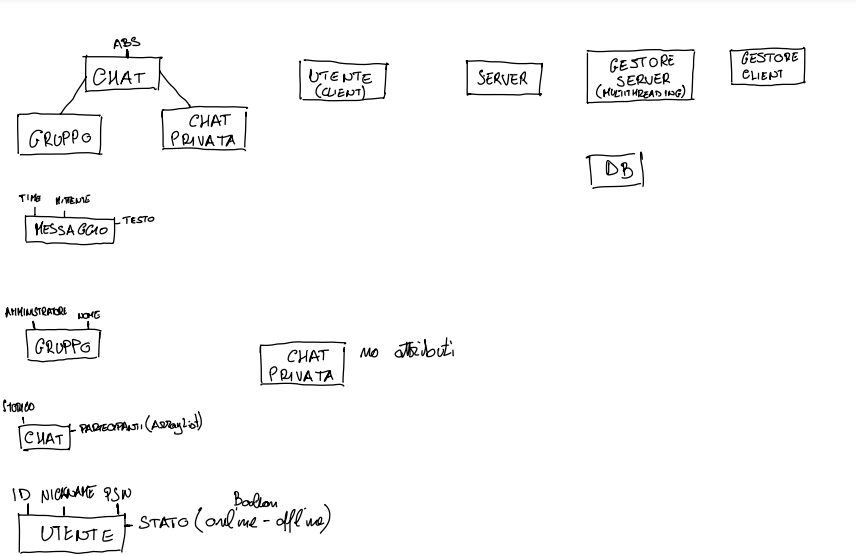 ABS
CHAT
GRUPPO
CHAT
PRIVATA
UTENTE
(CLIENT)
SERVER
GESTORE
SERVER
(MULTITHREADING)
GESTORE
CLIENT
DB
TIME MITTENTE
MESSAGGIO
TESTO
AMMINISTRATORE NOME
GRUPPO
CHAT
PRIVATA
no attributi
STORICO
CHAT
PARTECIPANTI (ArrayList)
ID NICKNAME PSW
UTENTE
Boolean
STATO (online - offline)